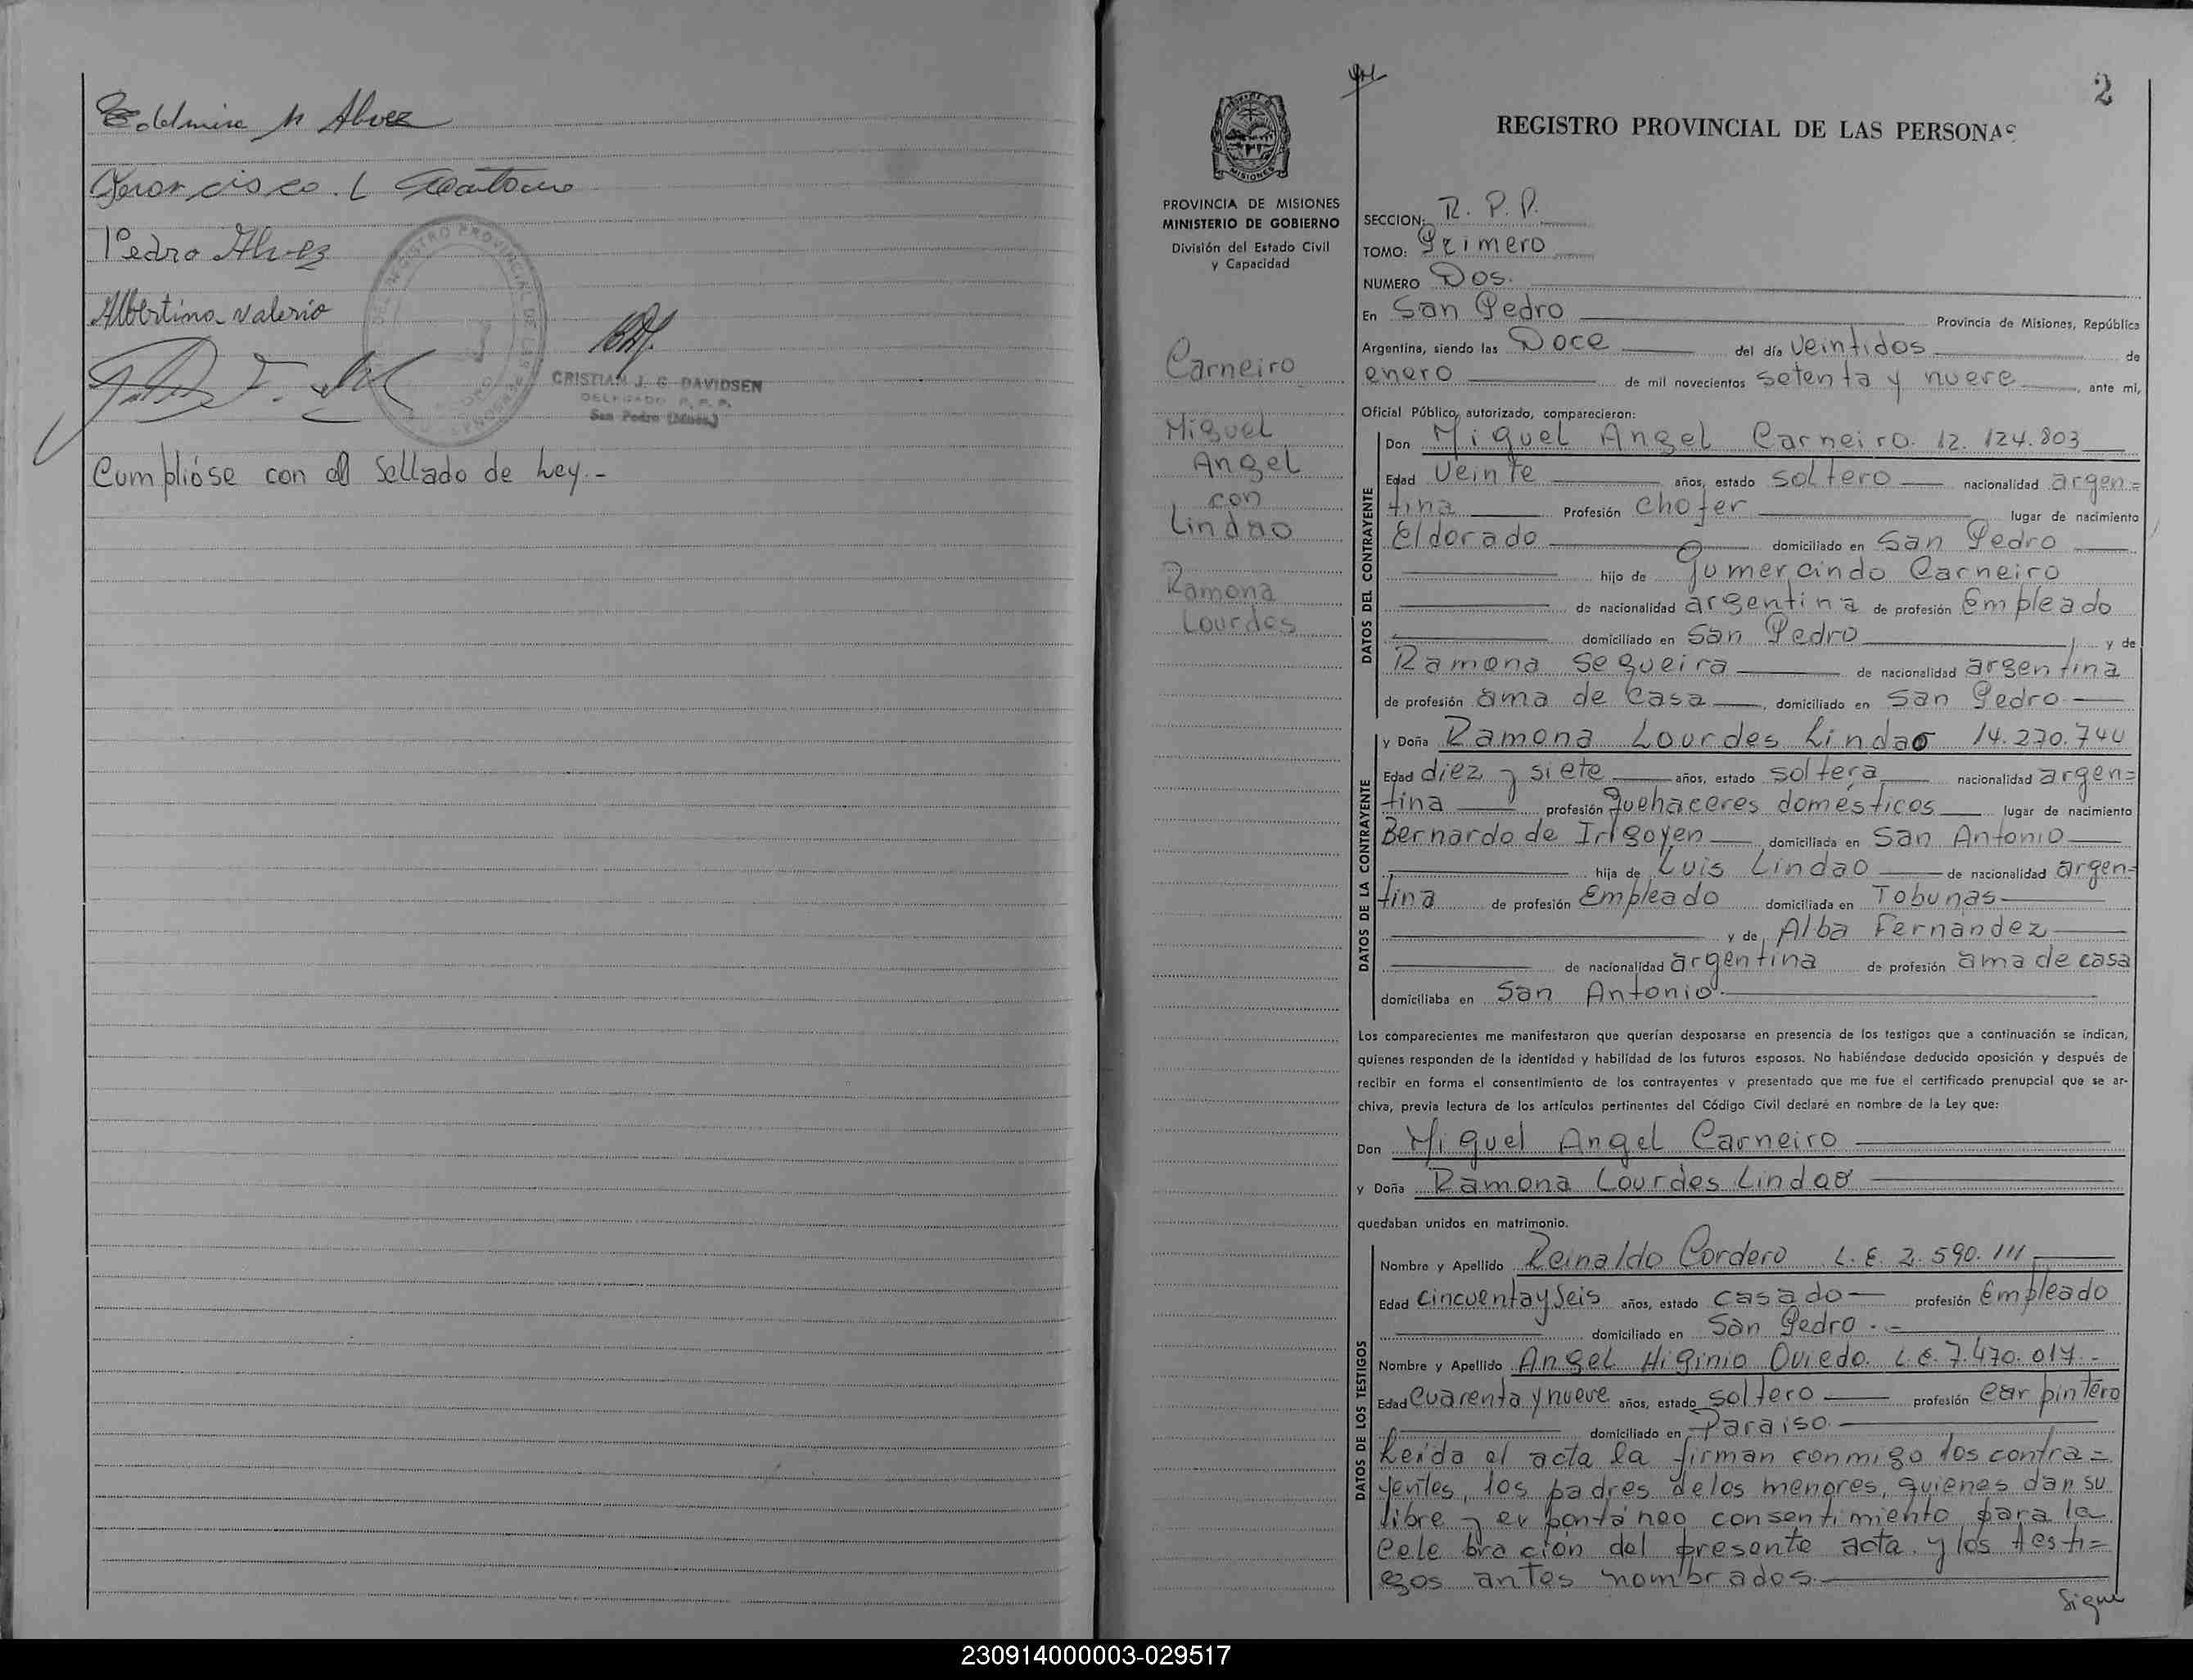 Edelmira M Alvez
Francisco L
Pedro Alvez
Albertina Valerio
CRISTIAN J. G. DAVIDSEN
DELEGADO R. P. P.
San Pedro (Mnes.)
Cumplióse con el Sellado de Ley.-
2
REGISTRO PROVINCIAL DE LAS PERSONAS
MISIONES
PROVINCIA DE MISIONES
MINISTERIO DE GOBIERNO
División del Estado Civil
y Capacidad
Carneiro
Miguel
Angel
con
Lindao
Ramona
Lourdes
SECCION: R. P. P.
TOMO: Primero
NUMERO Dos.
En San Pedro Provincia de Misiones, República
Argentina, siendo las Doce del día veintidos de
enero de mil novecientos setenta y nueve, ante mí,
Oficial Público, autorizado, comparecieron:
DATOS DEL CONTRAYENTE
Don Miguel Angel Carneiro. 12. 124.803
Edad veinte años, estado soltero nacionalidad argen=
tina Profesión chofer lugar de nacimiento
Eldorado domiciliado en San Pedro
hijo de Gumercindo Carneiro
de nacionalidad argentina de profesión Empleado
domiciliado en San Pedro y de
Ramona Sequeira de nacionalidad argentina
de profesión ama de casa, domiciliado en San Pedro
DATOS DE LA CONTRAYENTE
y Doña Ramona Lourdes Lindao 14.270.740
Edad diez y siete años, estado soltera nacionalidad argen=
tina profesión quehaceres domésticos lugar de nacimiento
Bernardo de Irigoyen domiciliada en San Antonio
hija de Luis Lindao de nacionalidad argen=
tina de profesión Empleado domiciliada en Tobunas
y de Alba Fernández
de nacionalidad argentina de profesión ama de casa
domiciliaba en San Antonio.
Los comparecientes me manifestaron que querían desposarse en presencia de los testigos que a continuación se indican,
quienes responden de la identidad y habilidad de los futuros esposos. No habiéndose deducido oposición y después de
recibir en forma el consentimiento de los contrayentes y presentado que me fue el certificado prenupcial que se ar-
chiva, previa lectura de los artículos pertinentes del Código Civil declaré en nombre de la Ley que:
Don Miguel Angel Carneiro
y Doña Ramona Lourdes Lindao
quedaban unidos en matrimonio.
DATOS DE LOS TESTIGOS
Nombre y Apellido Reinaldo Cordero L. E. 2. 590. 111
Edad cincuenta y seis años, estado casado profesión Empleado
domiciliado en San Pedro.-
Nombre y Apellido Angel Higinio Oviedo. L. E. 7.470.017.-
Edad cuarenta y nueve años, estado soltero profesión carpintero
domiciliado en Paraiso.
Leida el acta la firman conmigo los contra=
yentes, los padres de los menores, quienes dan su
libre y expontáneo consentimiento para la
celebración del presente acta y los testi=
gos antes nombrados.
Sigue
230914000003-029517